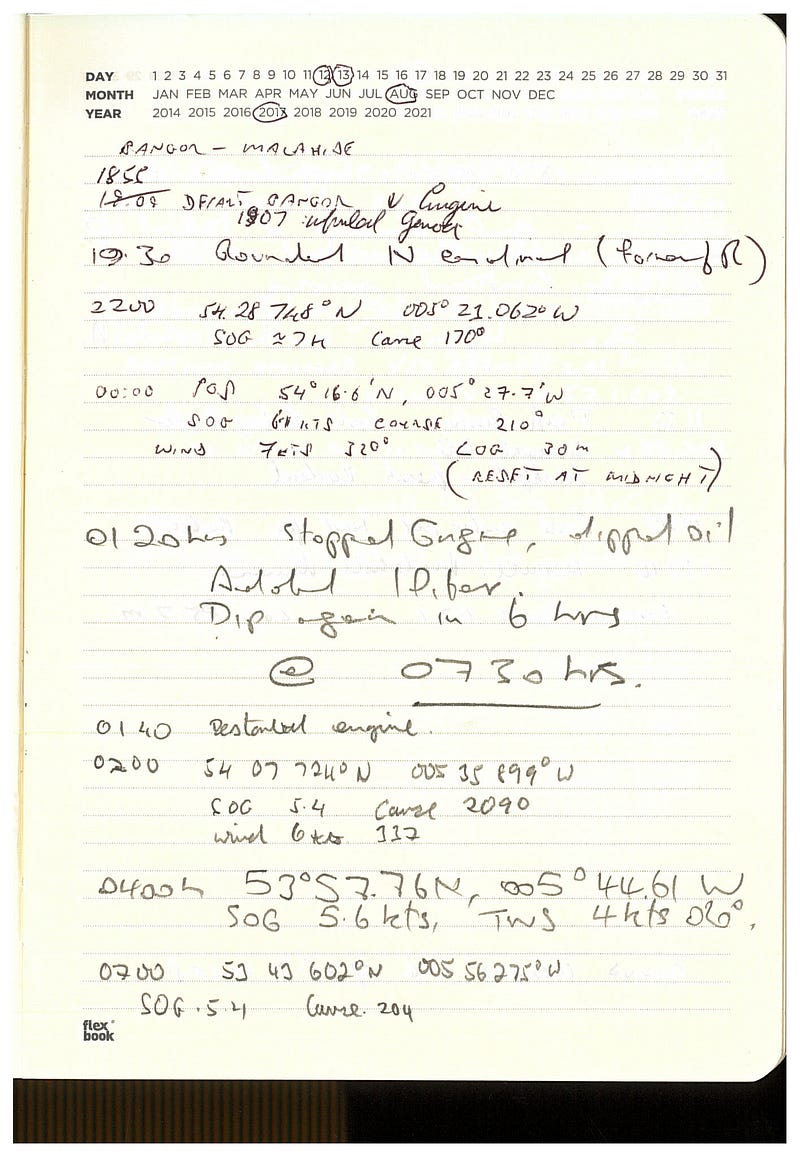 DAY 1 2 3 4 5 6 7 8 9 10 11 12 13 14 15 16 17 18 19 20 21 22 23 24 25 26 27 28 29 30 31
MONTH JAN FEB MAR APR MAY JUN JUL AUG SEP OCT NOV DEC
YEAR 2014 2015 2016 2017 2018 2019 2020 2021
BANGOR - MALAHIDE
1855
18.08 DEPART BANGOR Engine
1907 unfurled Genoa
19.30 Rounded N cardinal
2200 54.28 748°N 005°21.062°W
SOG ≈7k Course 170°
00:00 POS 54°16.6'N, 005°27.7'W
SOG KTS COURSE 210°
WIND 7KTS 320° LOG 30m
(RESET AT MIDNIGHT)
0120hrs Stopped Engine, dipped oil
Added 1 liter.
Dip again in 6 hrs
@ 0730hrs.
0140 Restarted engine.
0200 54 07 724°N 005 35 899°W
SOG 5.4 Course 2090
wind 6 kts 337
0400h 53°57.76N, 005°44.61 W
SOG 5.6 kts, TWS 4kts 020°,
0700 53 43 602°N 005 56 275°W
SOG.5.4 Course. 204
flex
book